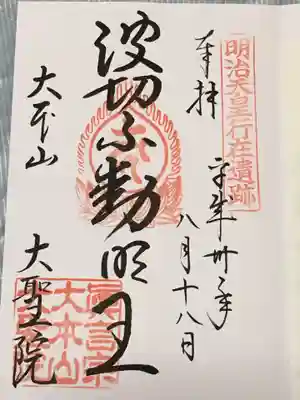 明治天皇行在遺跡
奉拝
平成卅年
八月十八日
波切不動明王
大本山
大聖院
真言宗
大本山